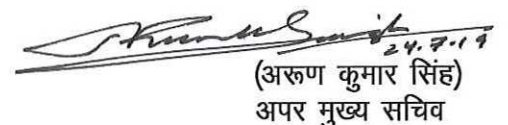 24.7.19
(अरूण कुमार सिंह)
अपर मुख्य सचिव